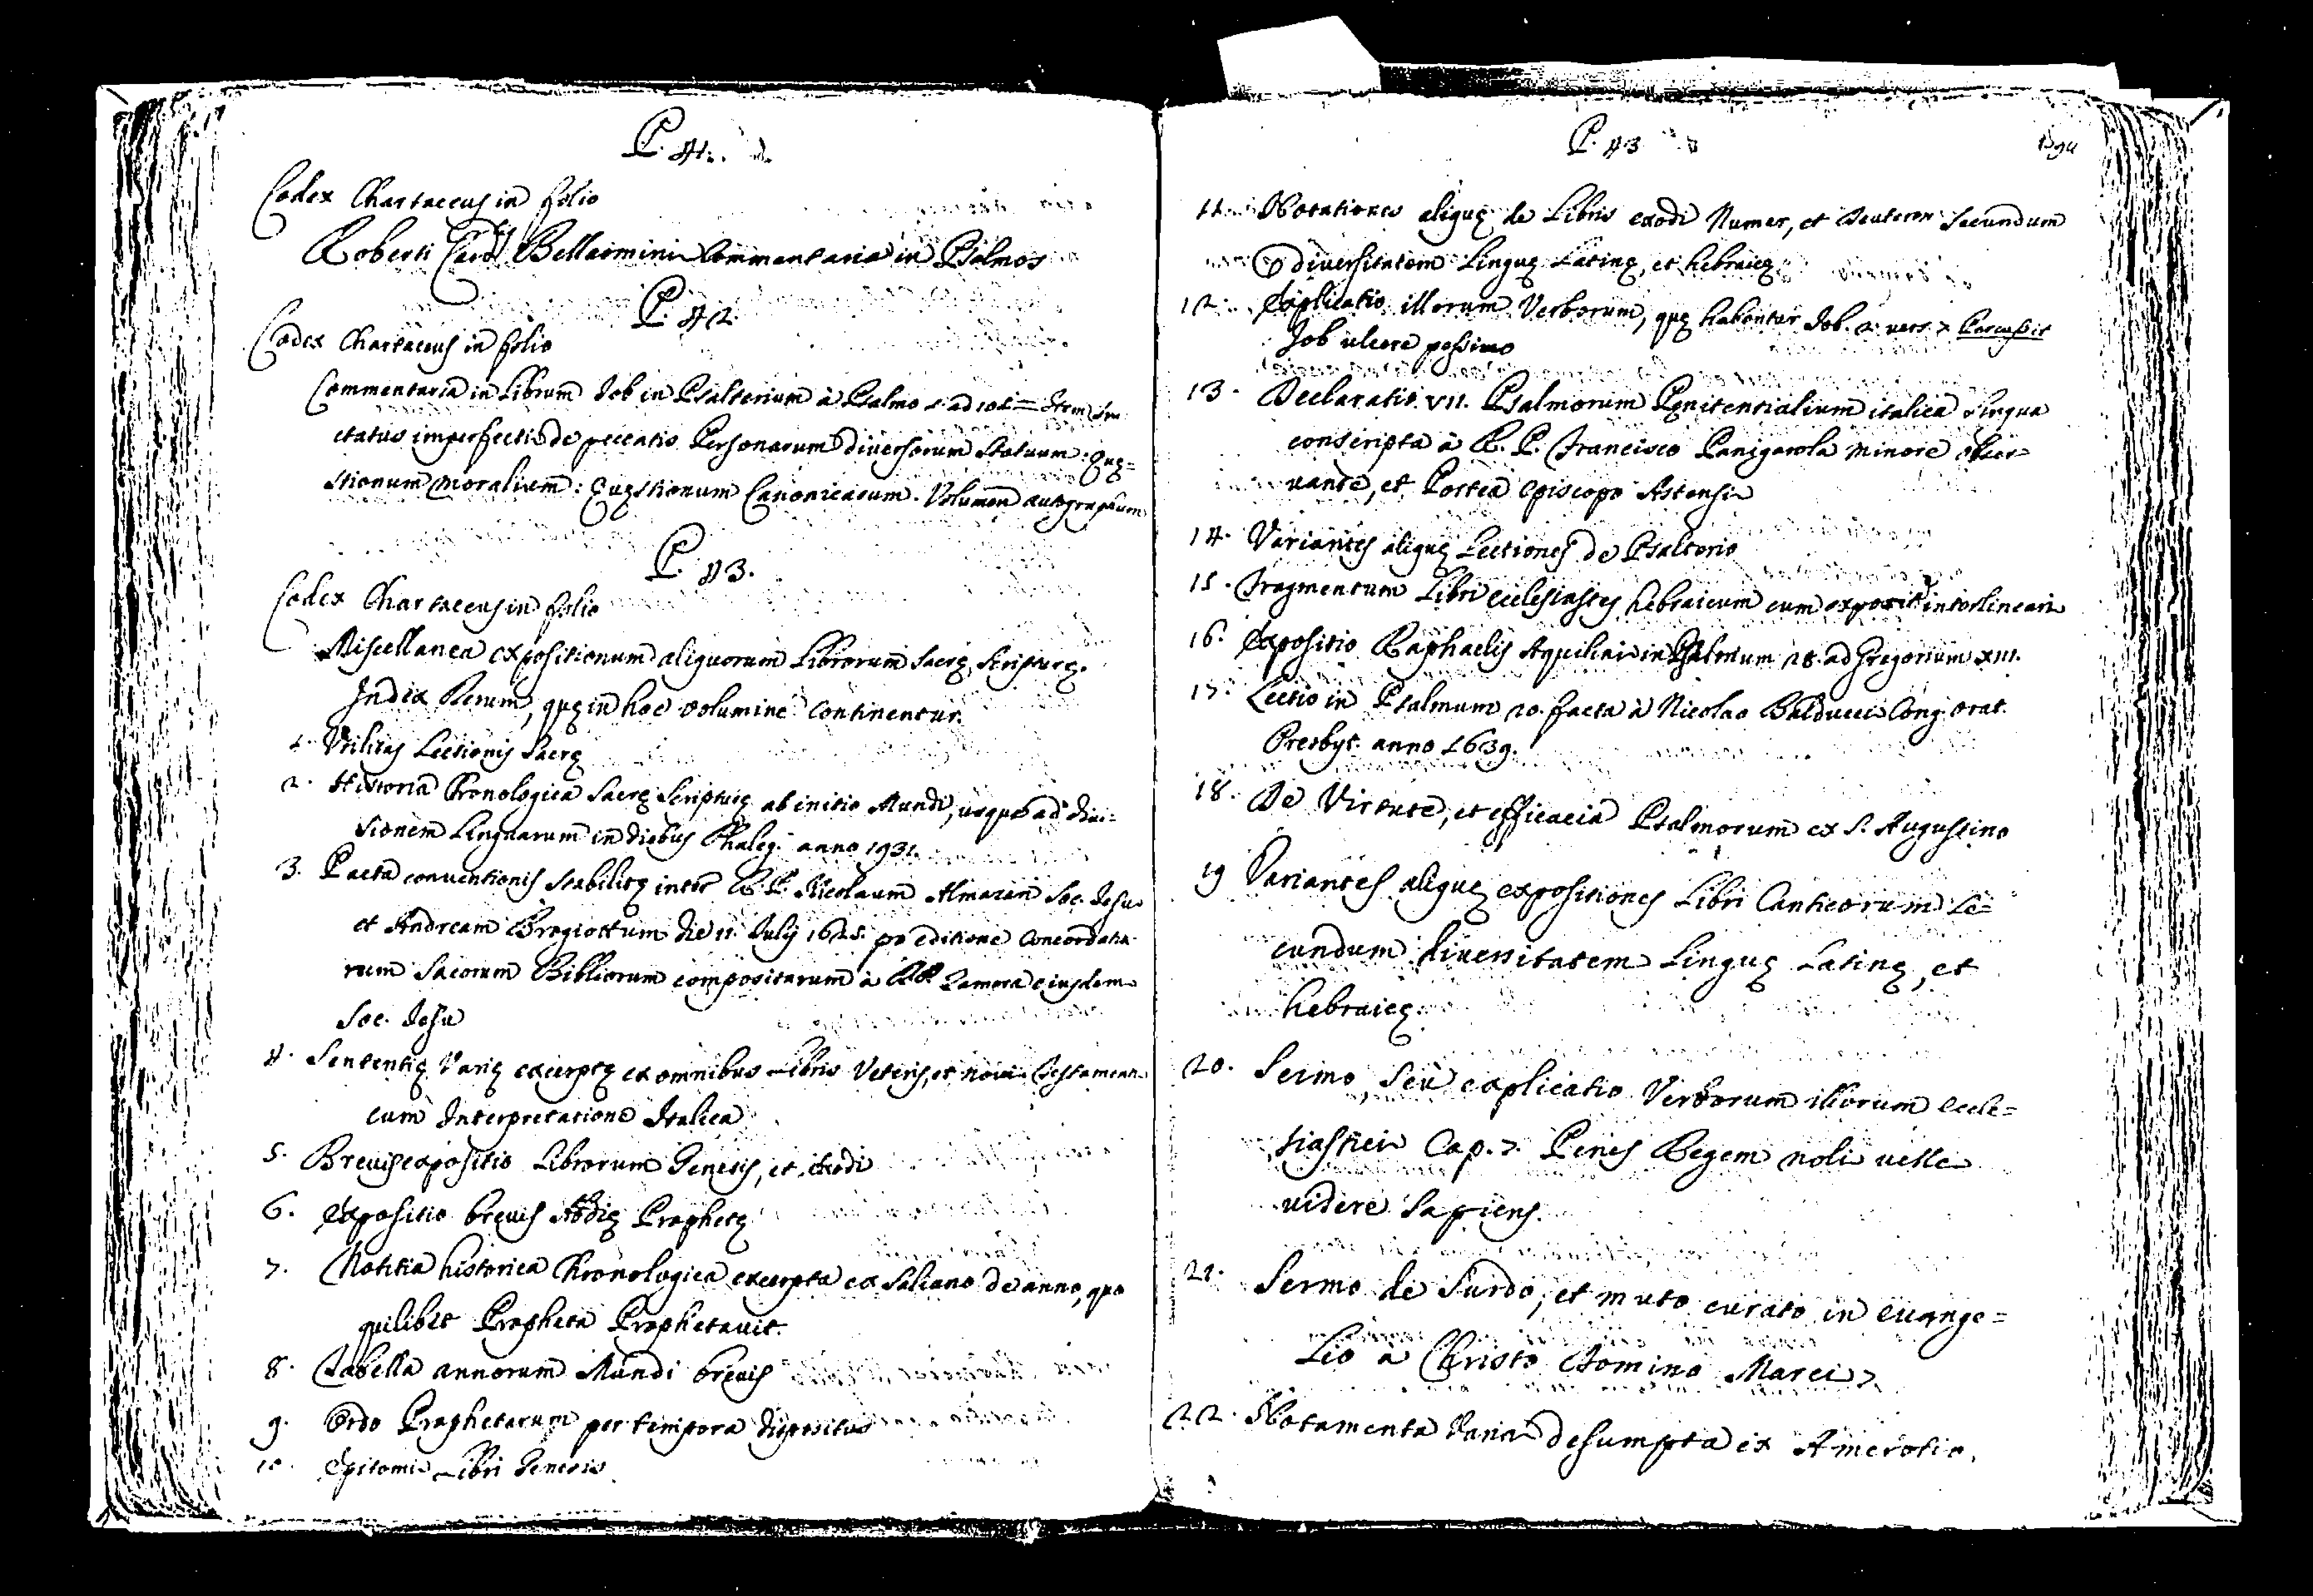 P. 41.
Codex Chartaceus in folio
Roberti Card.ˡⁱˢ Bellarmini Commentaria in Psalmos
P. 42
Codex Chartaceus in folio
Commentaria in Librum Job in Psalterium à Psalmo 1. ad 101= Item tra
ctatus imperfecti de peccatis Personarum diversorum Statuum: Quę=
stionum Moralium: Quęstionum Canonicarum. Volumen autographum
P. 43.
Codex Chartaceus in folio
Miscellanea expositionum aliquorum Librorum Sacrę Scripturę.
Index Rerum, quę in hoc volumine continentur.
1. Utilitas Lectionis Sacrę
2. Historia Chronologica Sacrę Scripturę ab initio Mundi, usque ad divi=
sionem Linguarum in diebus Phaleg. anno 1931.
3. Pacta conventionis stabilitę inter R. P. Nicolaum Almazan Soc. Jesu
et Andream Brogiottum die 11. Julij 1625. pro editione Concordatia
rum Sacrorum Bibliorum compositarum à Zamora eiusdem
Soc. Jesu
4. Sententię Varię excerptę ex omnibus Libris Veteris, et novi Testamen.
cum Interpretatione Italica
5. Brevis expositio Librorum Genesis, et Exodi
6. Expositio brevis Abdię Prophetę
7. Notitia historica Chronologica excerpta ex Saliano de anno, quo
quilibet Propheta Prophetavit.
8. Tabella annorum Mundi brevis
9. Ordo Prophetarum per tempora dispositus
10. Epitome Libri Genesis
P. 43
11. Notationes aliquę de Libris exodi Numer, et Deuteron secundum
diversitatem Linguę Latinę, et hebraicę
12. Explicatio illorum Verborum, quę habentur Job. 2. vers. 7 Percussit
Job ulcere pessimo
13. Declaratio VII. Psalmorum Pęnitentialium italica Lingua
conscripta à R. P. Francisco Panigarola Minore obser=
vante, et Postea Episcopo Astensi
14. Variantes aliquę Lectiones de Psalterio
15. Fragmentum Libri ecclesiastes hebraicum cum exposit.ᵉ interlineari
16. Expositio Raphaelis Aquilini in Psalmum 28. ad Gregorium XIII.
17. Lectio in Psalmum 20. facta à Nicolao Balducci Cong. Orat.
Presbyt. anno 1639.
18. De Virtute, et efficacia Psalmorum ex S. Augustino
19 Variantes aliquę expositiones Libri Canticorum Se=
cundum diversitatem Linguę Latinę, et
hebraicę.
20. Sermo, seù explicatio Verborum illorum eccle=
siastici Cap. 7. Penes Regem noli velle
videre Sapiens.
21. Sermo de Surdo, et muto curato in evange=
lio a Christo Domino Marci 7
22. Notamenta Varia desumpta ex Amerotio.